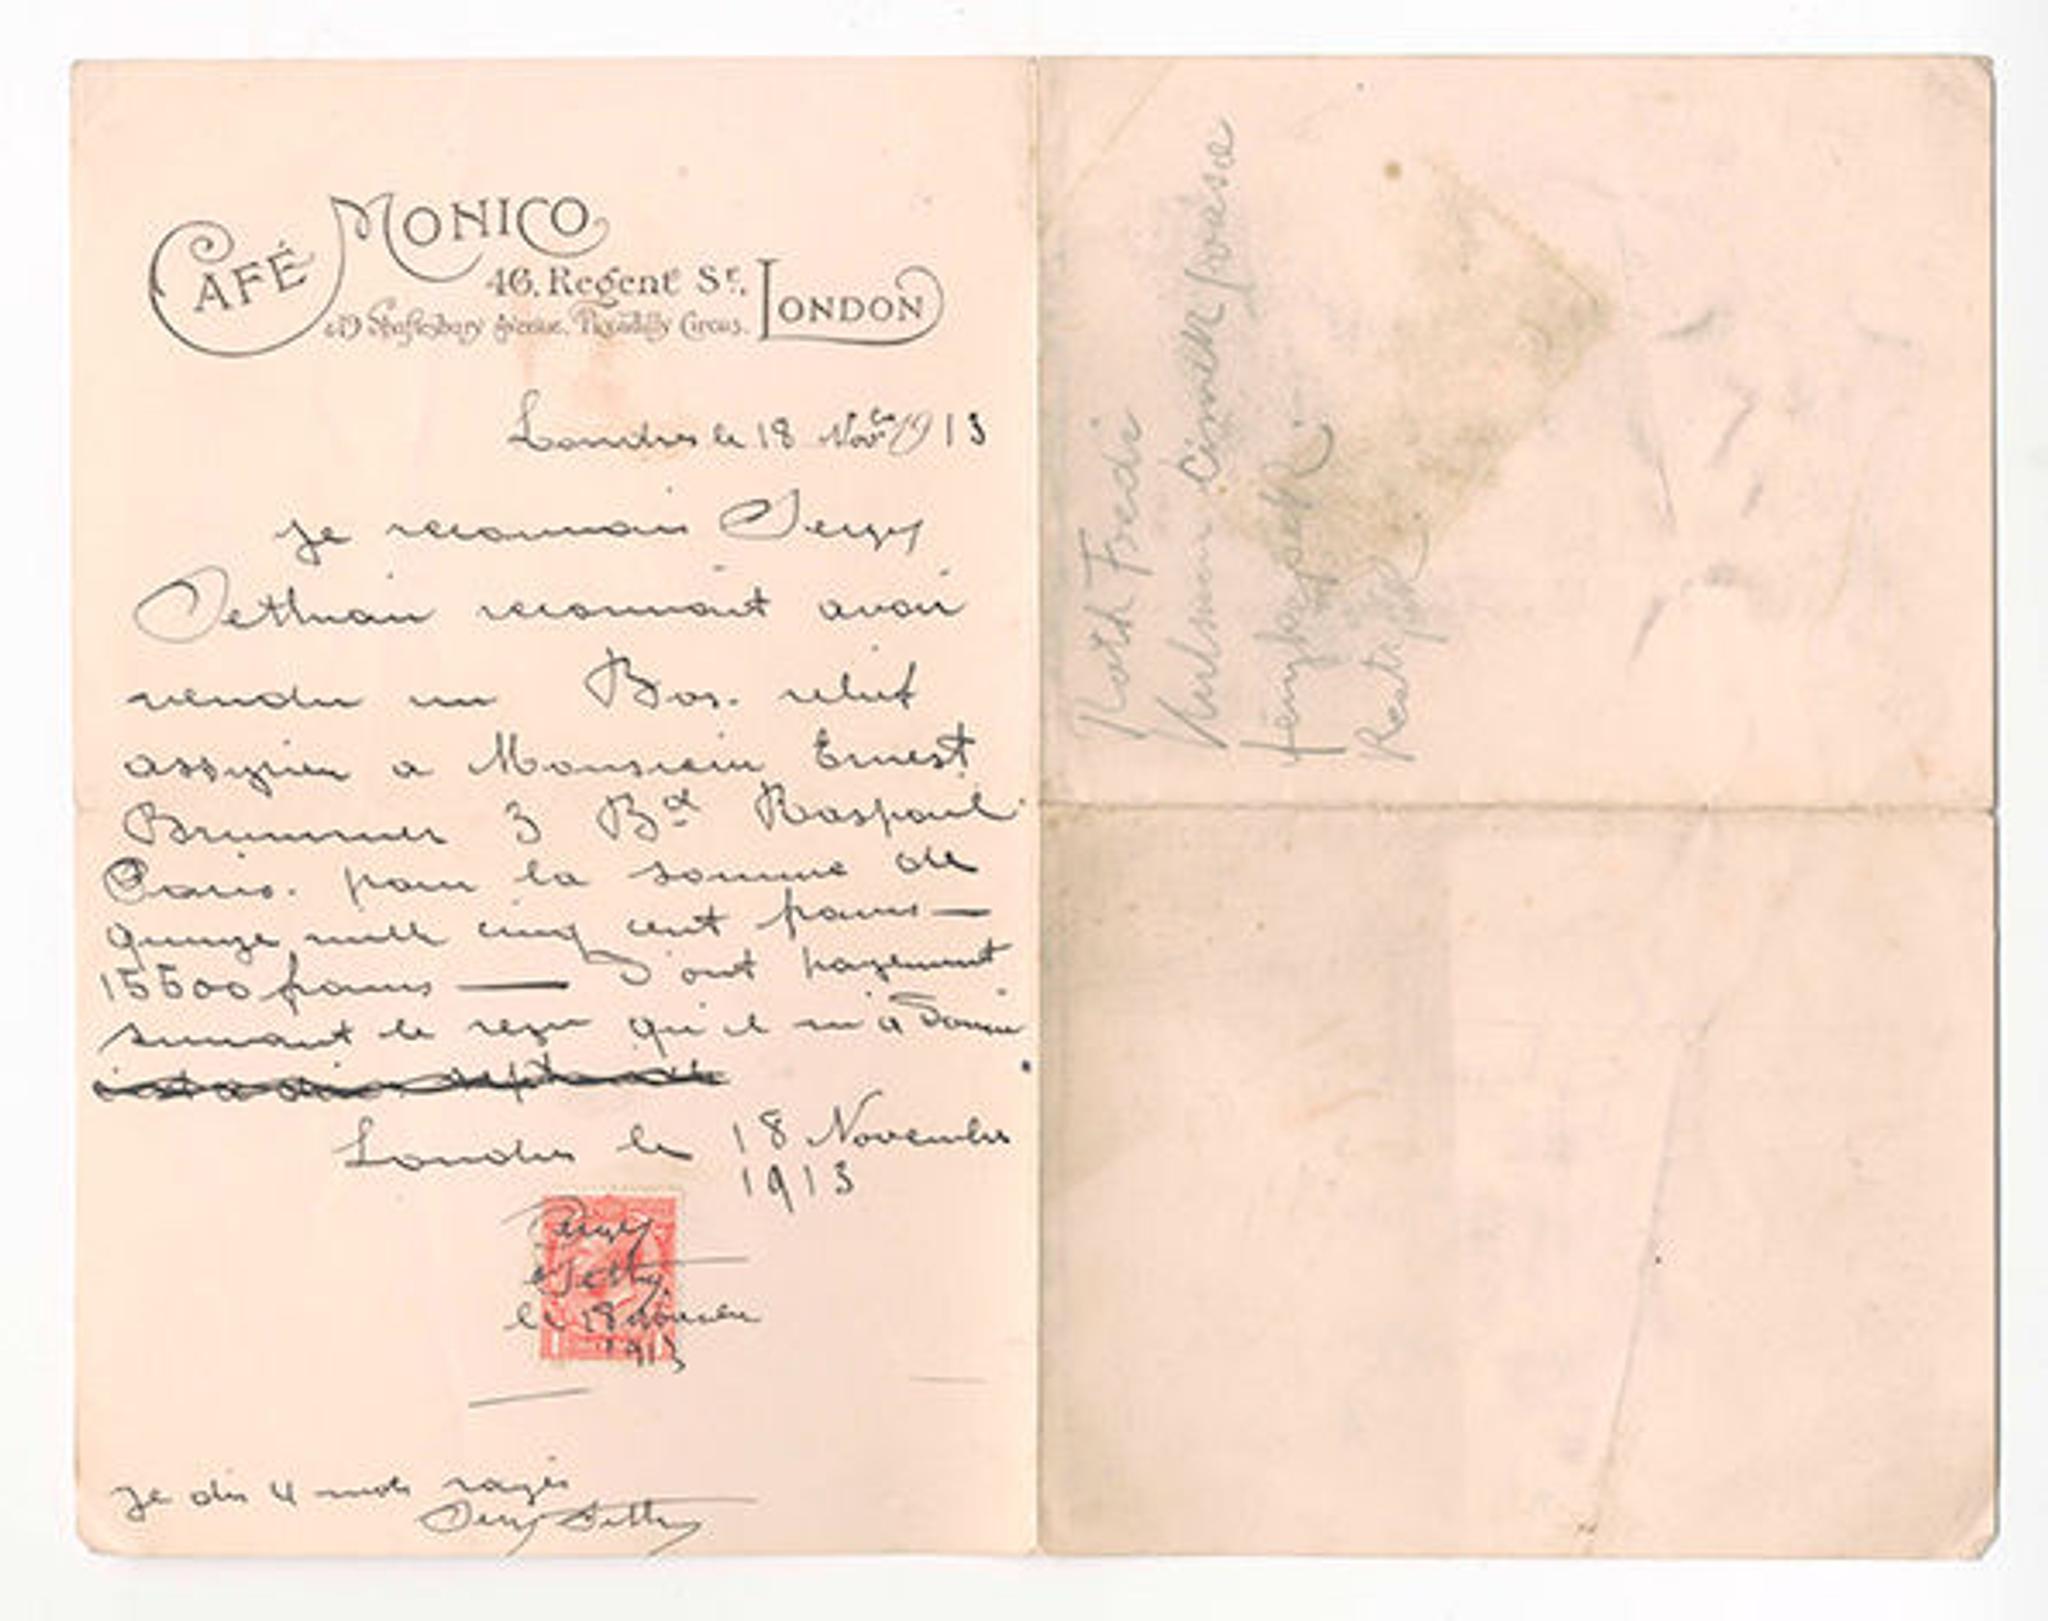 CAFÉ MONICO
46, Regent St.
& 19 Shaftesbury Avenue, Piccadilly Circus. LONDON
Londres le 18 Novbre 1913
je reconnais Sergy
Sethian reconnait avoir
vendu un Bas. relief
assyrien a Monsieur Ernest
Brummer 3 Bd Raspail
Paris. pour la somme de
quinze mille cinq cent francs —
15500 francs — d'ont payement
suivant le reçu qu'il m'a
Londres le 18 Novembre
1913
Sergy
le 18 Novembre
1913
je dis 4 mots rayés
Roth Fredi